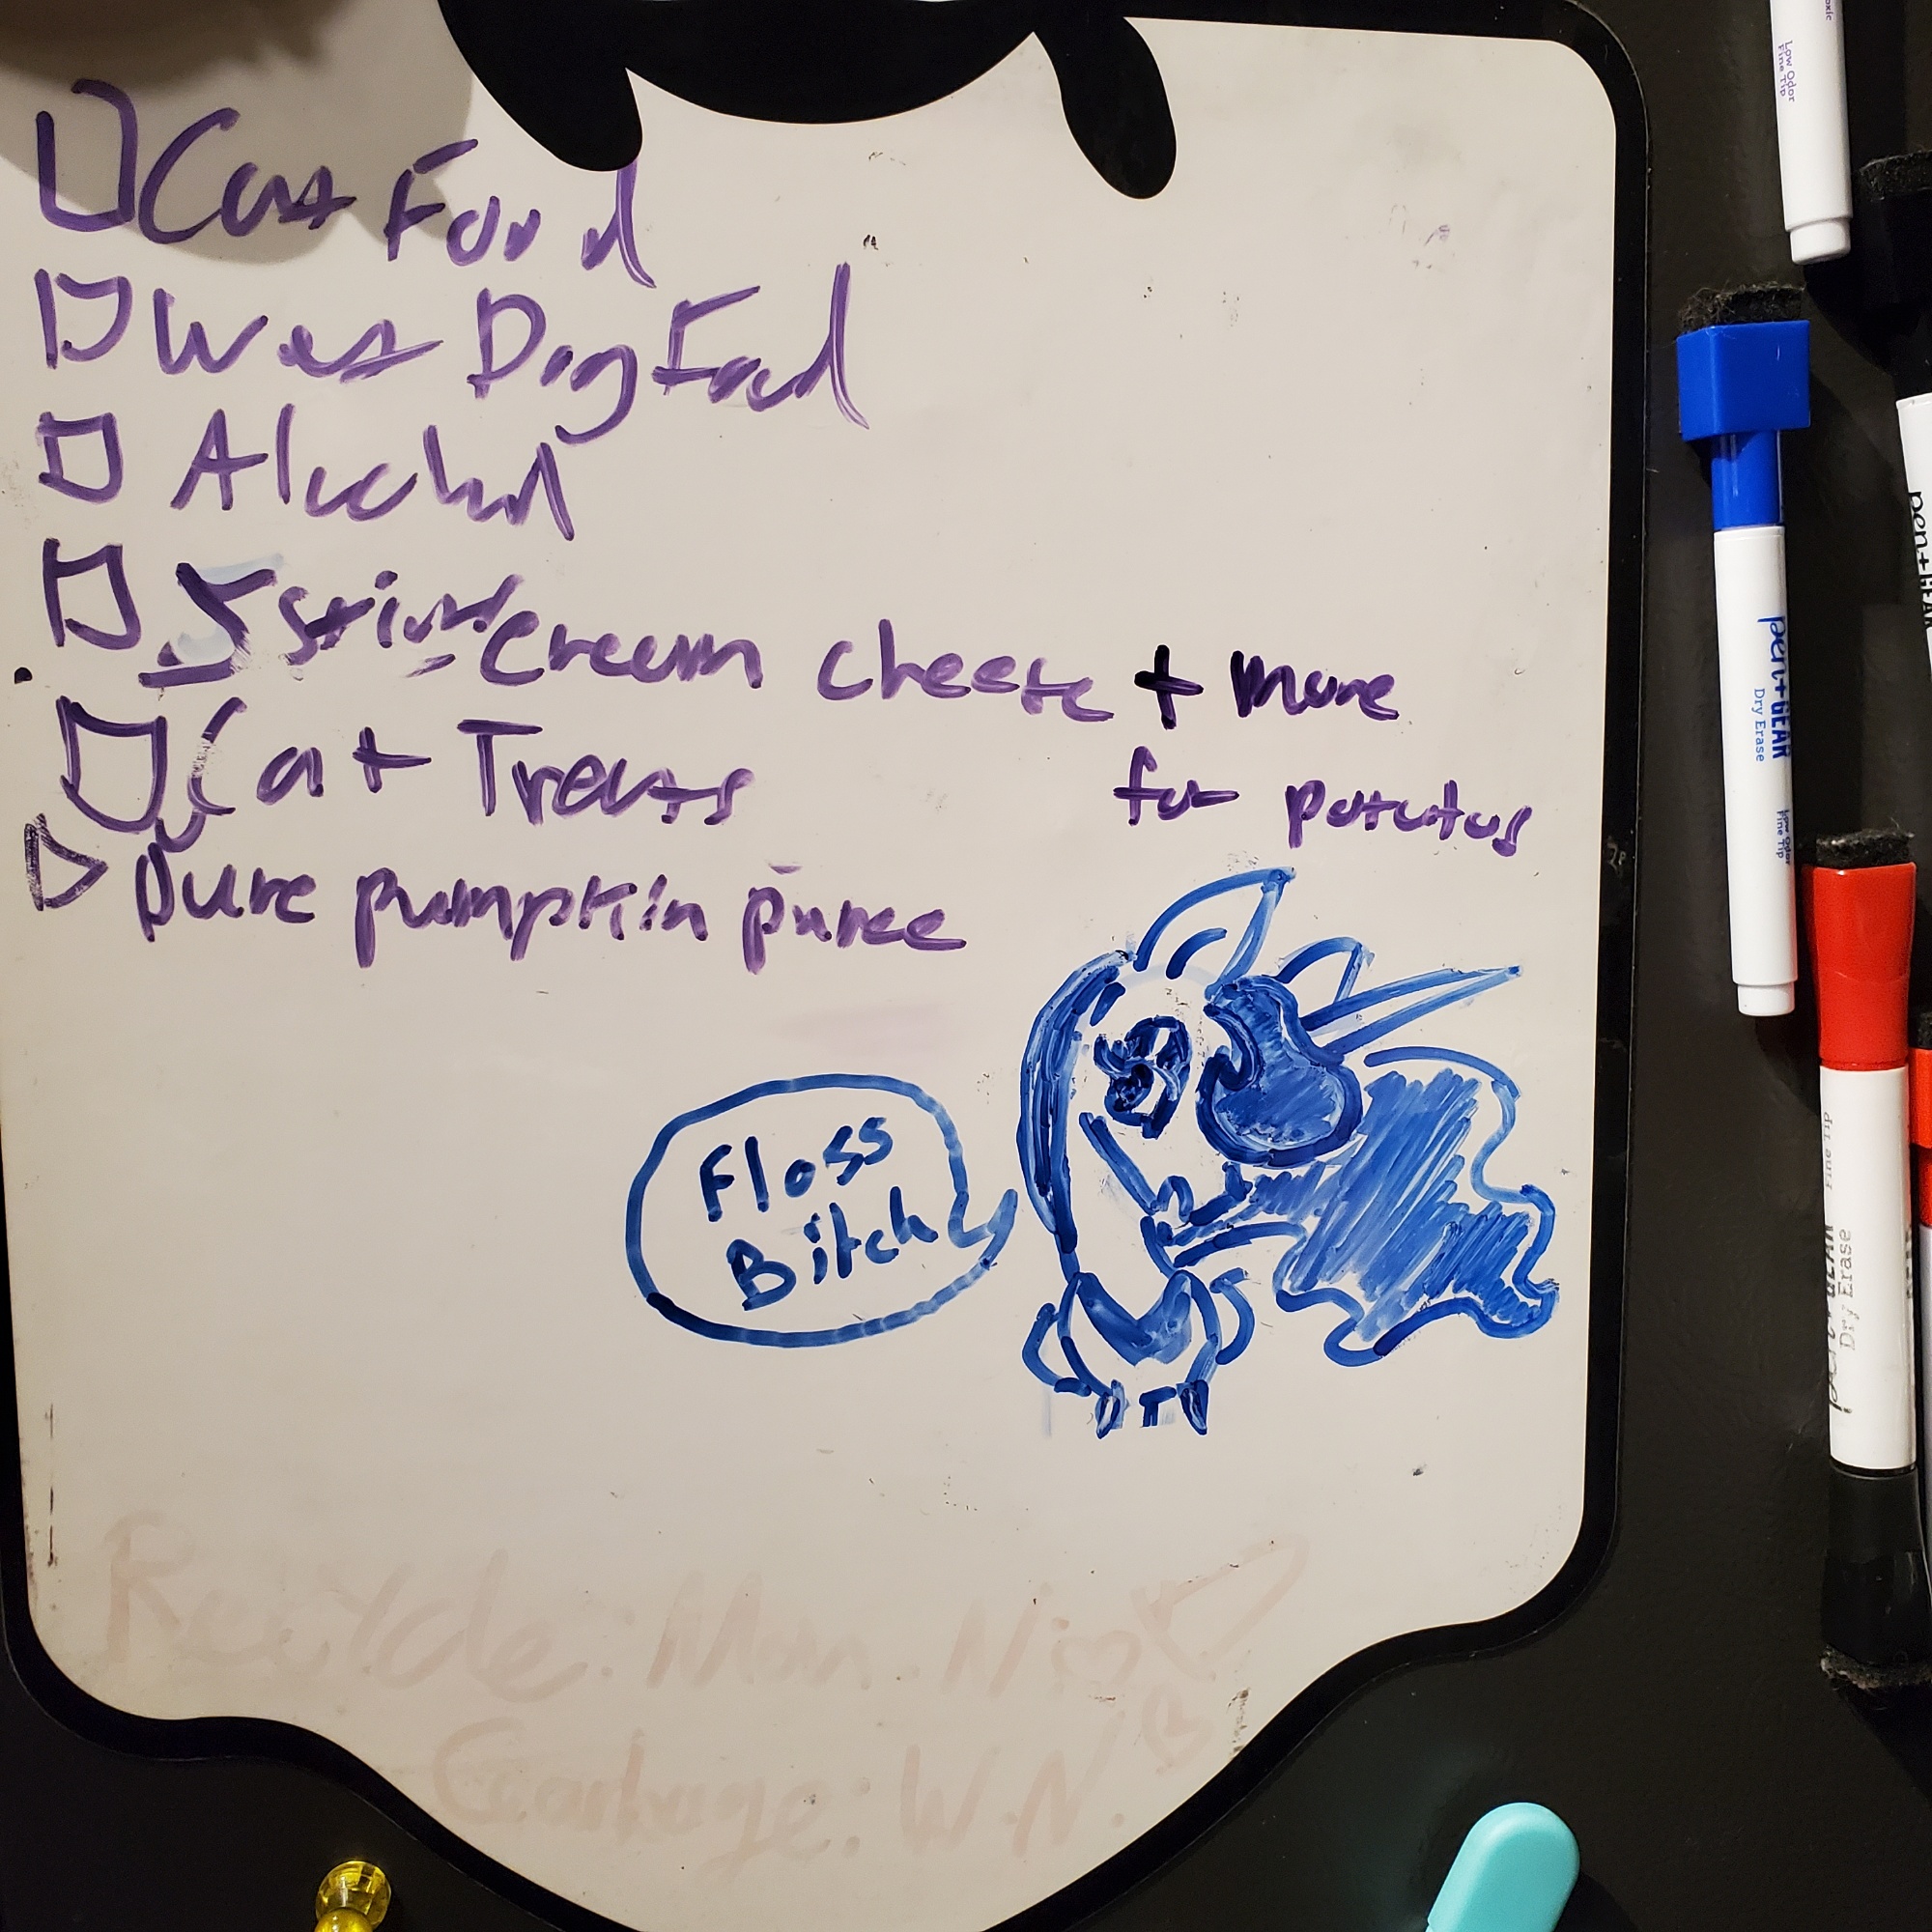 Cat Food
Wet Dog Food
Alcohol
5 strick cream cheese + more
for potatos
Cat Treats
Pure pumpkin puree
Floss
Bitch
Recycle: Mon. Ni
Garbage: W.N.
pen+GEAR
Dry Erase
Low Odor
Fine Tip
Low Odor
Fine Tip
pen+GEAR
pen+GEAR
Dry Erase
Fine Tip